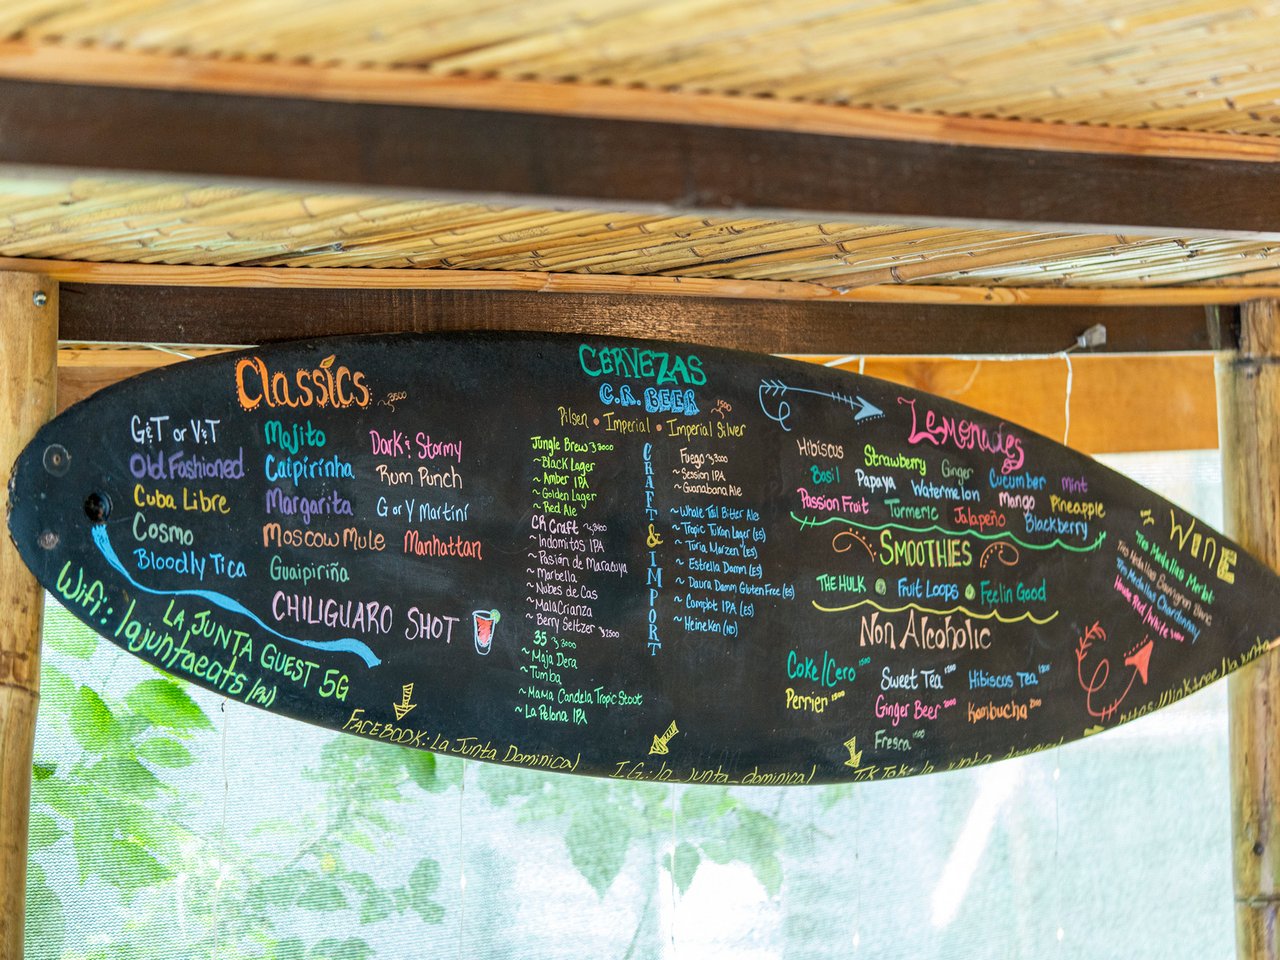 Classics ~3500
G&T or V&T
Old Fashioned
Cuba Libre
Cosmo
Bloodly Tica
Mojito
Caipirinha
Margarita
Moscow Mule
Guaipiriña
Dark & Stormy
Rum Punch
G or V Martini
Manhattan
CHILIGUARO SHOT
Wifi:
LA JUNTA GUEST 5G
lajuntaeats
CERVEZAS
C.R. BEER 1500
Pilsen • Imperial • Imperial Silver
Jungle Brew ~3000
~Black Lager
~Amber IPA
~Golden Lager
~Red Ale
CR Craft
~Indomitos IPA
~Pasión de Maracuya
~Marbella
~Nubes de Cas
~MalaCrianza
~Berry Seltzer ~2500
35 ~3000
~Maja Dera
~Tumba
~Mama Candela Tropic Stout
~La Pelona IPA
CRAFT & IMPORT
Fuego ~3000
~Session IPA
~Guanabana Ale
~Whale Tail Bitter Ale
~Tropic Tukan Lager (ES)
~Turia Marzen (ES)
~Estrella Damm (ES)
~Daura Damm Gluten Free (ES)
~Complot IPA (ES)
~Heineken
LEMONADES
Hibiscus
Strawberry
Ginger
Cucumber
Mint
Basil
Papaya
Watermelon
Mango
Pineapple
Passion Fruit
Turmeric
Jalapeño
Blackberry
SMOOTHIES
THE HULK • Fruit Loops • Feelin Good
Non Alcoholic
Coke/Cero 1500
Sweet Tea 1200
Hibiscus Tea 1200
Perrier 1500
Ginger Beer 2000
Kombucha 2000
Fresca 1500
~ WINE
Tres Medallas Merlot
Tres Medallas Sauvignon Blanc
Tres Medallas Chardonnay
House Red/White
FACEBOOK: La Junta Dominical
IG: la_junta_dominical
Tik Tok: la_junta_dominical
https://linktree/la.junta